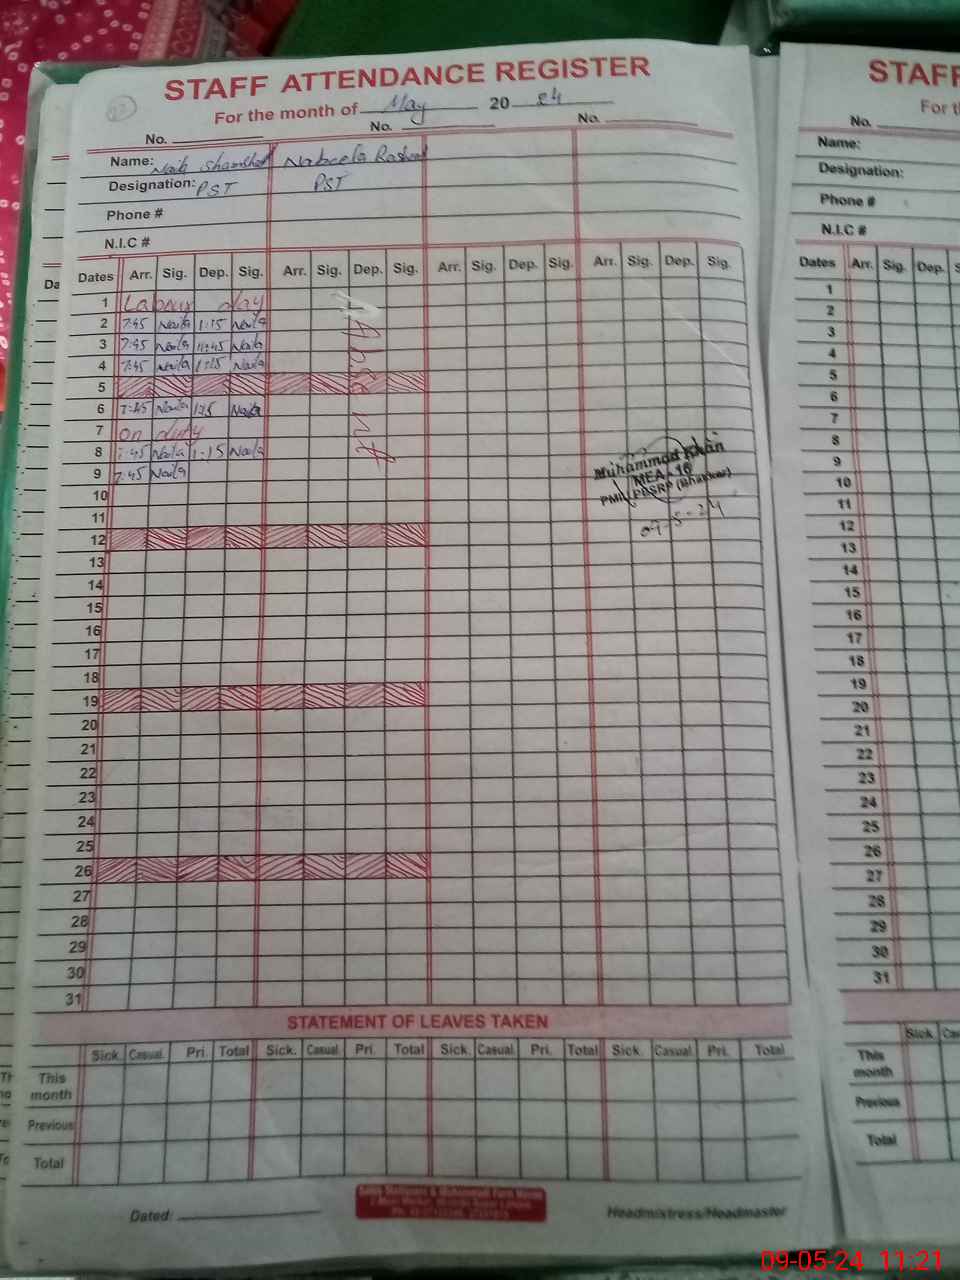 STAFF ATTENDANCE REGISTER
For the month of May 2024
No. No. No.
Name: Shamshad Nabeela Rashad
Designation: PST PST
Phone #
N.I.C #
Dates Arr. Sig. Dep. Sig. Arr. Sig. Dep. Sig. Arr. Sig. Dep. Sig. Arr. Sig. Dep. Sig.
1 Labour day
2 7:45 Naila 1:15 Naila
3 7:45 Naila 11:45 Naila
4 7:45 Naila 1:15 Naila
5
6 7:45 Naila 1:15 Naila
7 On duty
8 7:45 Naila 1:15 Naila
9 7:45 Naila
Absent
10
11
12
13
14
15
16
17
18
19
20
21
22
23
24
25
26
27
28
29
30
31
Muhammad Khan
MEA - 16
PMIU PESRP (Bhakkar)
09-5-24
STATEMENT OF LEAVES TAKEN
Sick. Casual. Pri. Total Sick. Casual. Pri. Total Sick. Casual. Pri. Total Sick. Casual. Pri. Total
This month
Previous
Total
Dated: Headmistress/Headmaster
STAFF
For
No.
Name:
Designation:
Phone #
N.I.C #
Dates Arr. Sig. Dep.
1
2
3
4
5
6
7
8
9
10
11
12
13
14
15
16
17
18
19
20
21
22
23
24
25
26
27
28
29
30
31
Sick.
This month
Previous
Total
09-05-24 11:21